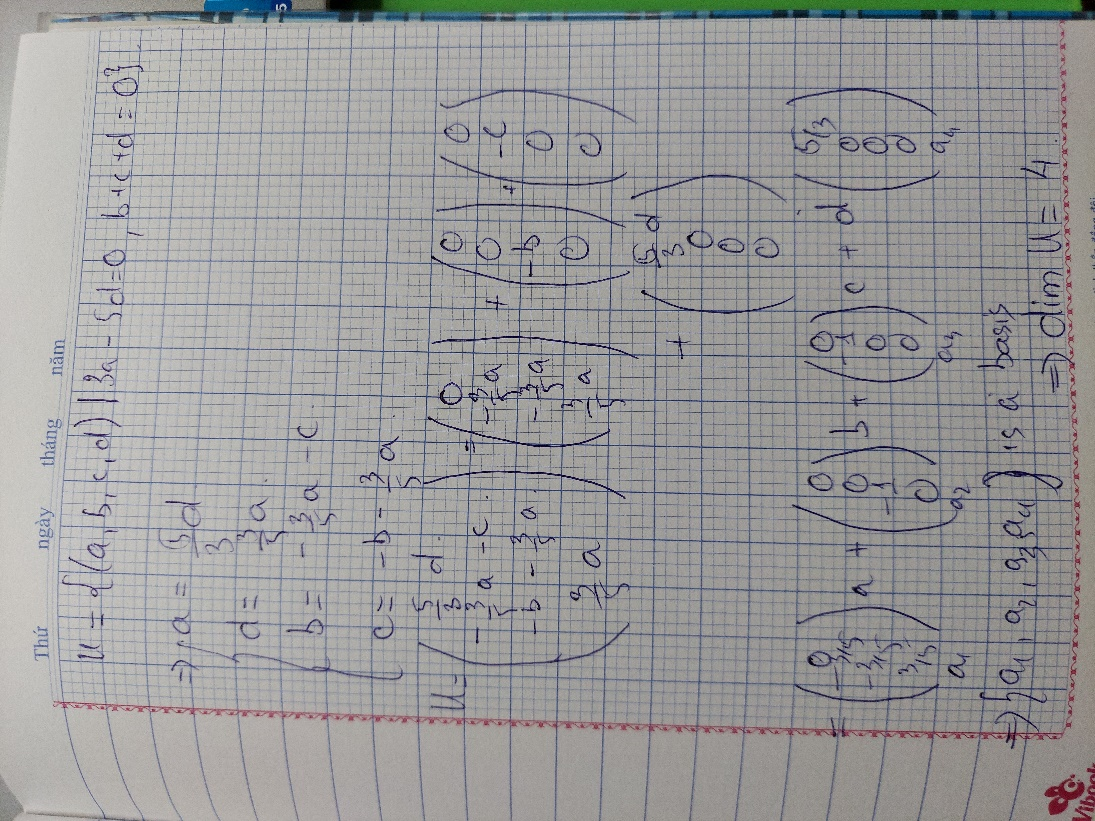 Thứ ngày tháng năm
U = {(a, b, c, d) | 3a - 5d = 0, b + c + d = 0}.
=> { a = 5/3 d
d = 3/5 a.
b = -3/5 a - c
c = -b - 3/5 a
U = ( 5/3 d. ; -3/5 a - c. ; -b - 3/5 a. ; 3/5 a ) = ( 0 ; -3/5 a ; -3/5 a ; 3/5 a ) + ( 0 ; 0 ; -b ; 0 ) + ( 0 ; -c ; 0 ; 0 )
+ ( 5/3 d ; 0 ; 0 ; 0 )
= ( 0 ; -3/5 ; -3/5 ; 3/5 ) a + ( 0 ; 0 ; -1 ; 0 ) b + ( 0 ; -1 ; 0 ; 0 ) c + d ( 5/3 ; 0 ; 0 ; 0 )
a1 a2 a3 a4
=> {a1, a2, a3, a4} is a basis
=> dim U = 4.
Vibook